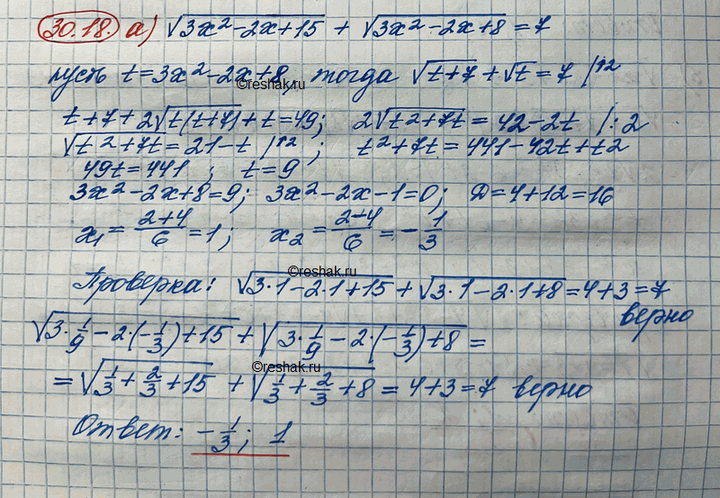 30.18. а) √3x²-2x+15 + √3x²-2x+8 = 7
пусть t=3x²-2x+8, тогда √t+7 + √t = 7 |↑2
©reshak.ru
t+7+2√t(t+7)+t=49; 2√t²+7t = 42-2t |:2
√t²+7t = 21-t |↑2; t²+7t = 441-42t+t2
49t=441; t=9
3x²-2x+8=9; 3x²-2x-1=0; D=4+12=16
x₁ = 2+4/6 = 1; x₂ = 2-4/6 = -1/3
©reshak.ru
Проверка: √3·1-2·1+15 + √3·1-2·1+8 = 4+3=7
верно
√3·1/9-2·(-1/3)+15 + √3·1/9-2·(-1/3)+8 =
©reshak.ru
= √1/3+2/3+15 + √1/3+2/3+8 = 4+3=7 верно
Ответ: -1/3; 1